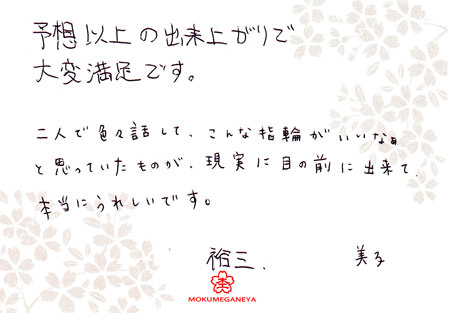 予想以上の出来上がりで
大変満足です。
二人で色々話して、こんな指輪がいいなぁ
と思っていたものが、現実に目の前に出来て、
本当にうれしいです。
裕三、 美子
MOKUMEGANEYA